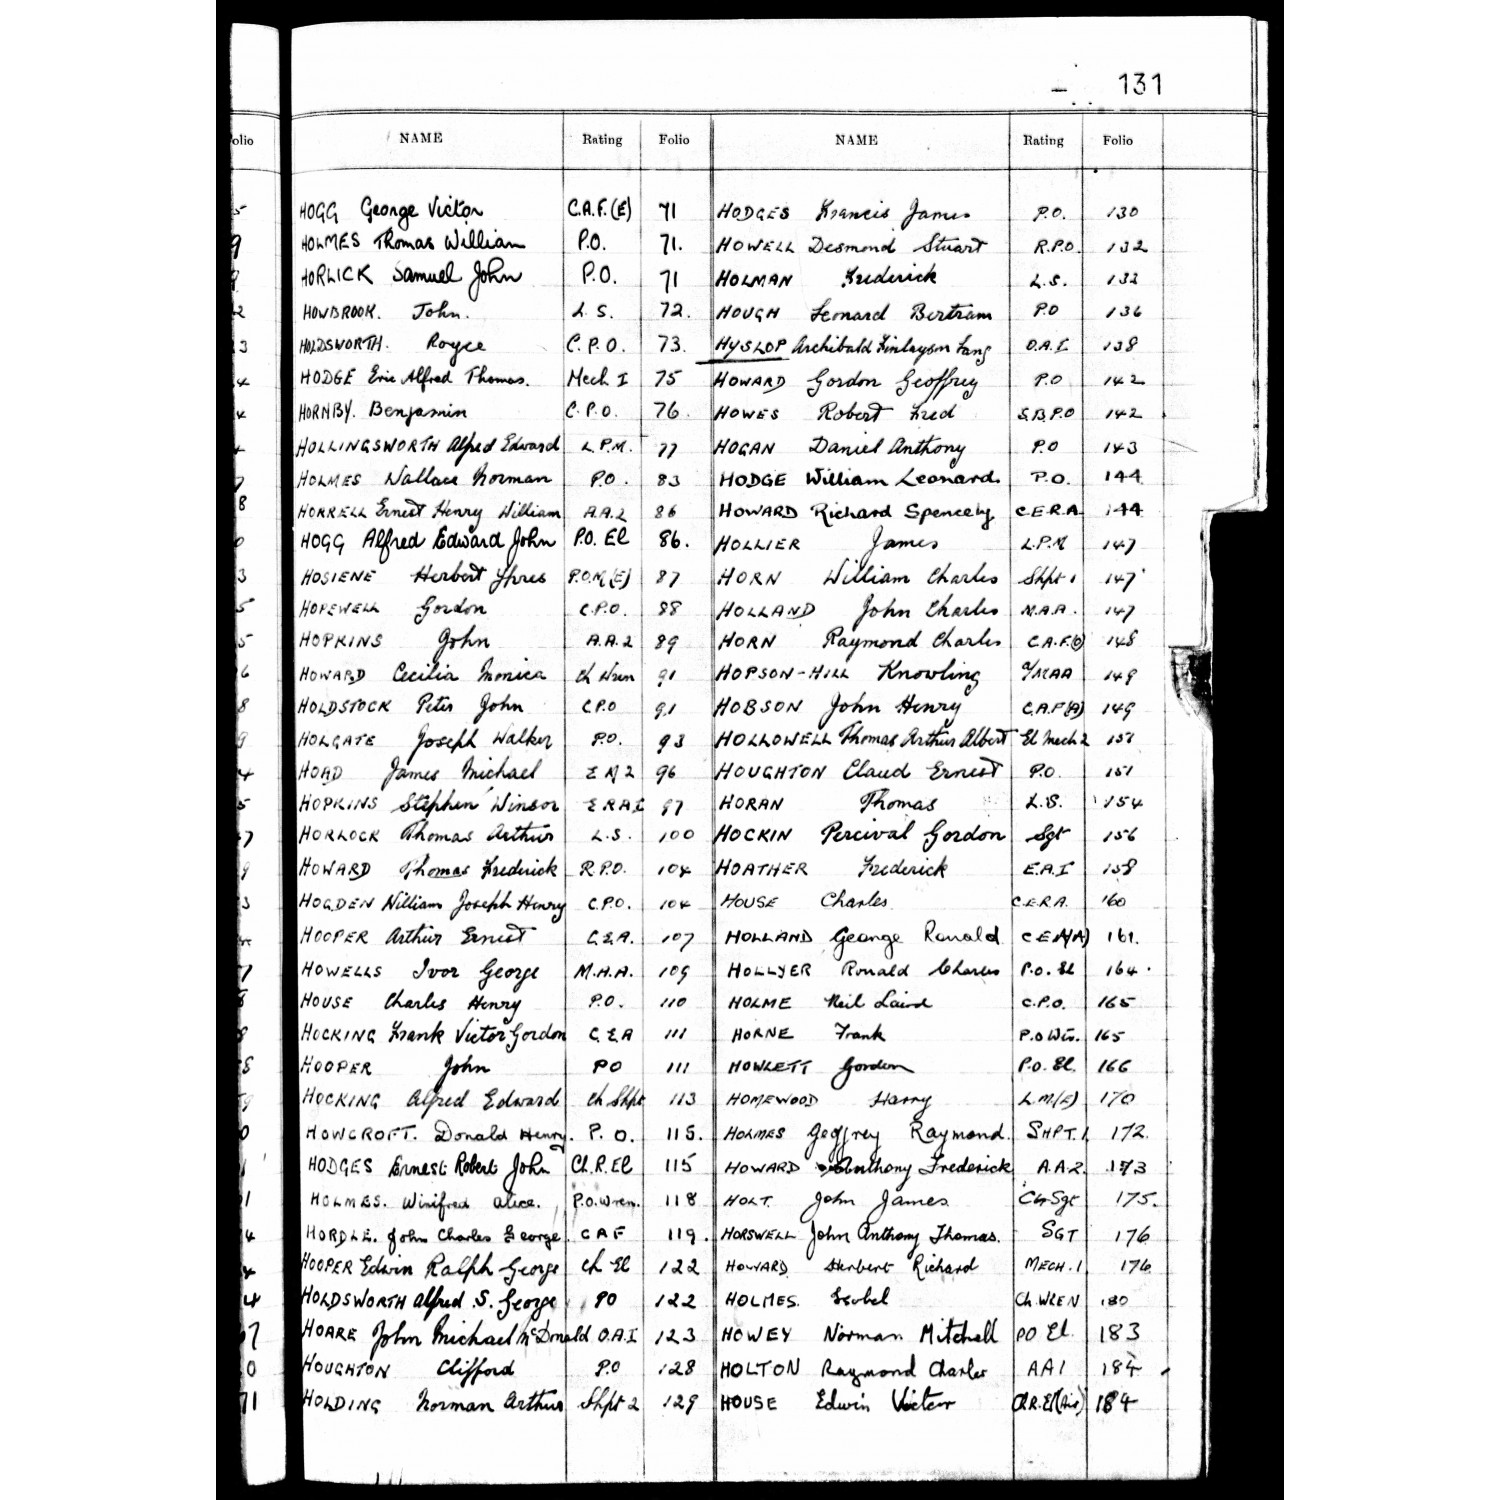 131
olio NAME Rating Folio NAME Rating Folio
HOGG George Victor C.A.F.(E) 71 HODGES Francis James P.O. 130
HOLMES Thomas William P.O. 71. HOWELL Desmond Stuart R.P.O. 132
HORLICK Samuel John P.O. 71 HOLMAN Frederick L.S. 133
HOWBROOK. John. L.S. 72. HOUGH Leonard Bertram P.O 136
HOLDSWORTH. Royce C.P.O. 73. HYSLOP Archibald Finlayson Lang O.A.I 138
HODGE Eric Alfred Thomas. Mech I 75 HOWARD Gordon Geoffrey P.O 142
HORNBY. Benjamin C.P.O. 76. HOWES Robert Fred S.B.P.O 142
HOLLINGSWORTH Alfred Edward L.P.M. 77 HOGAN Daniel Anthony P.O 143
HOLMES Wallace Norman P.O. 83 HODGE William Leonard. P.O. 144
HORRELL Ernest Henry William A.A.2 86 HOWARD Richard Spencely C.E.R.A 144
HOGG Alfred Edward John P.O. El 86. HOLLIER James L.P.M 147
HOSIENE Herbert Ypres P.O.M(E) 87 HORN William Charles Shpt 1 147
HOPEWELL Gordon C.P.O. 88 HOLLAND John Charles M.A.A. 147
HOPKINS John A.A.2 89 HORN Raymond Charles C.A.F.(O) 148
HOWARD Cecilia Monica Ch Wren 91 HOPSON-HILL Knowling a/MAA 149
HOLDSTOCK Peter John C.P.O 91 HOBSON John Henry C.A.F(A) 149
HOLGATE Joseph Walker P.O. 93 HOLLOWELL Thomas Arthur Albert El Mech 2 151
HOAD James Michael E M 2 96 HOUGHTON Claud Ernest P.O. 151
HOPKINS Stephen Winsor E R A I 97 HORAN Thomas L.S. 154
HORLOCK Thomas Arthur L.S. 100 HOCKIN Percival Gordon Sgt 156
HOWARD Thomas Frederick R.P.O. 104 HOATHER Frederick E.A.I 158
HOGDEN William Joseph Henry C.P.O. 104 HOUSE Charles C.E.R.A. 160
HOOPER Arthur Ernest C.E.A. 107 HOLLAND George Ronald C E A(A) 161.
HOWELLS Ivor George M.A.A. 109 HOLLYER Ronald Charles P.O. El 164.
HOUSE Charles Henry P.O. 110 HOLME Neil Laird C.P.O. 165
HOCKING Frank Victor Gordon C.E.A 111 HORNE Frank P.O Wtr. 165
HOOPER John PO 111 HOWLETT Gordon P.O. El. 166
HOCKING Alfred Edward Ch Shpt 113 HOMEWOOD Harry L.M(E) 170
HOWCROFT. Donald Henry. P.O. 115. HOLMES Geoffrey Raymond. SHPT.1 172.
HODGES Ernest Robert John Ch.R.El 115 HOWARD Anthony Frederick A.A.2. 173
HOLMES. Winifred Alice. P.O.Wren. 118 HOLT. John James Clr Sgt 175.
HORDLE. John Charles George. C A F 119. HORSWELL John Anthony Thomas. SGT 176
HOOPER Edwin Ralph George Ch El 122 HOWARD Herbert Richard MECH.1 176
HOLDSWORTH Alfred S. George PO 122 HOLMES. Isobel Ch.WREN 180
HOARE John Michael McDonald O.A.I 123 HOWEY Norman Mitchell PO El. 183
HOUGHTON Clifford P.O 128 HOLTON Raymond Charles A A 1 184
HOLDING Norman Arthur Shpt 2 129 HOUSE Edwin Victor Ch.R.El(Air) 184